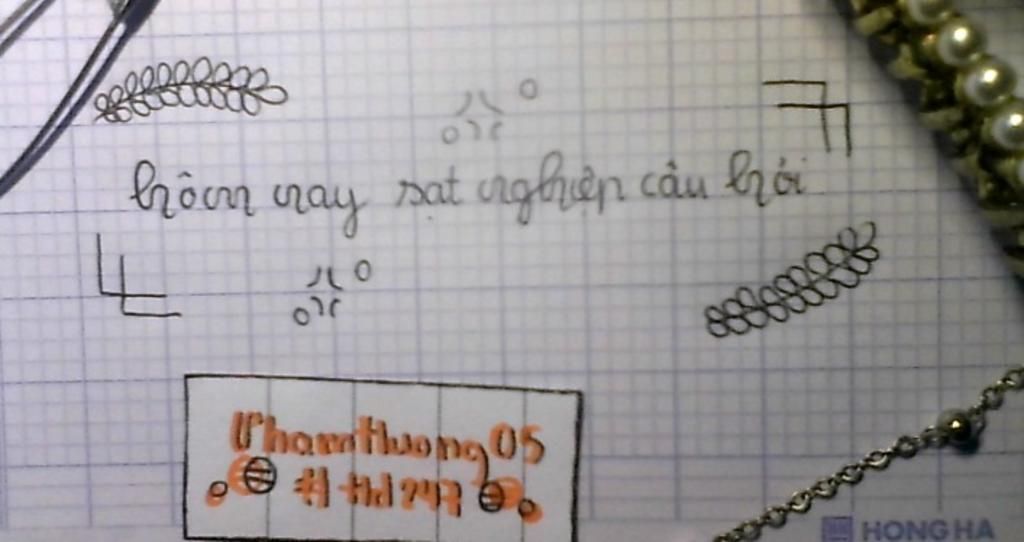 hôm nay sạt nghiệp câu hỏi
Phamthuong05
#thd247
HONG HA